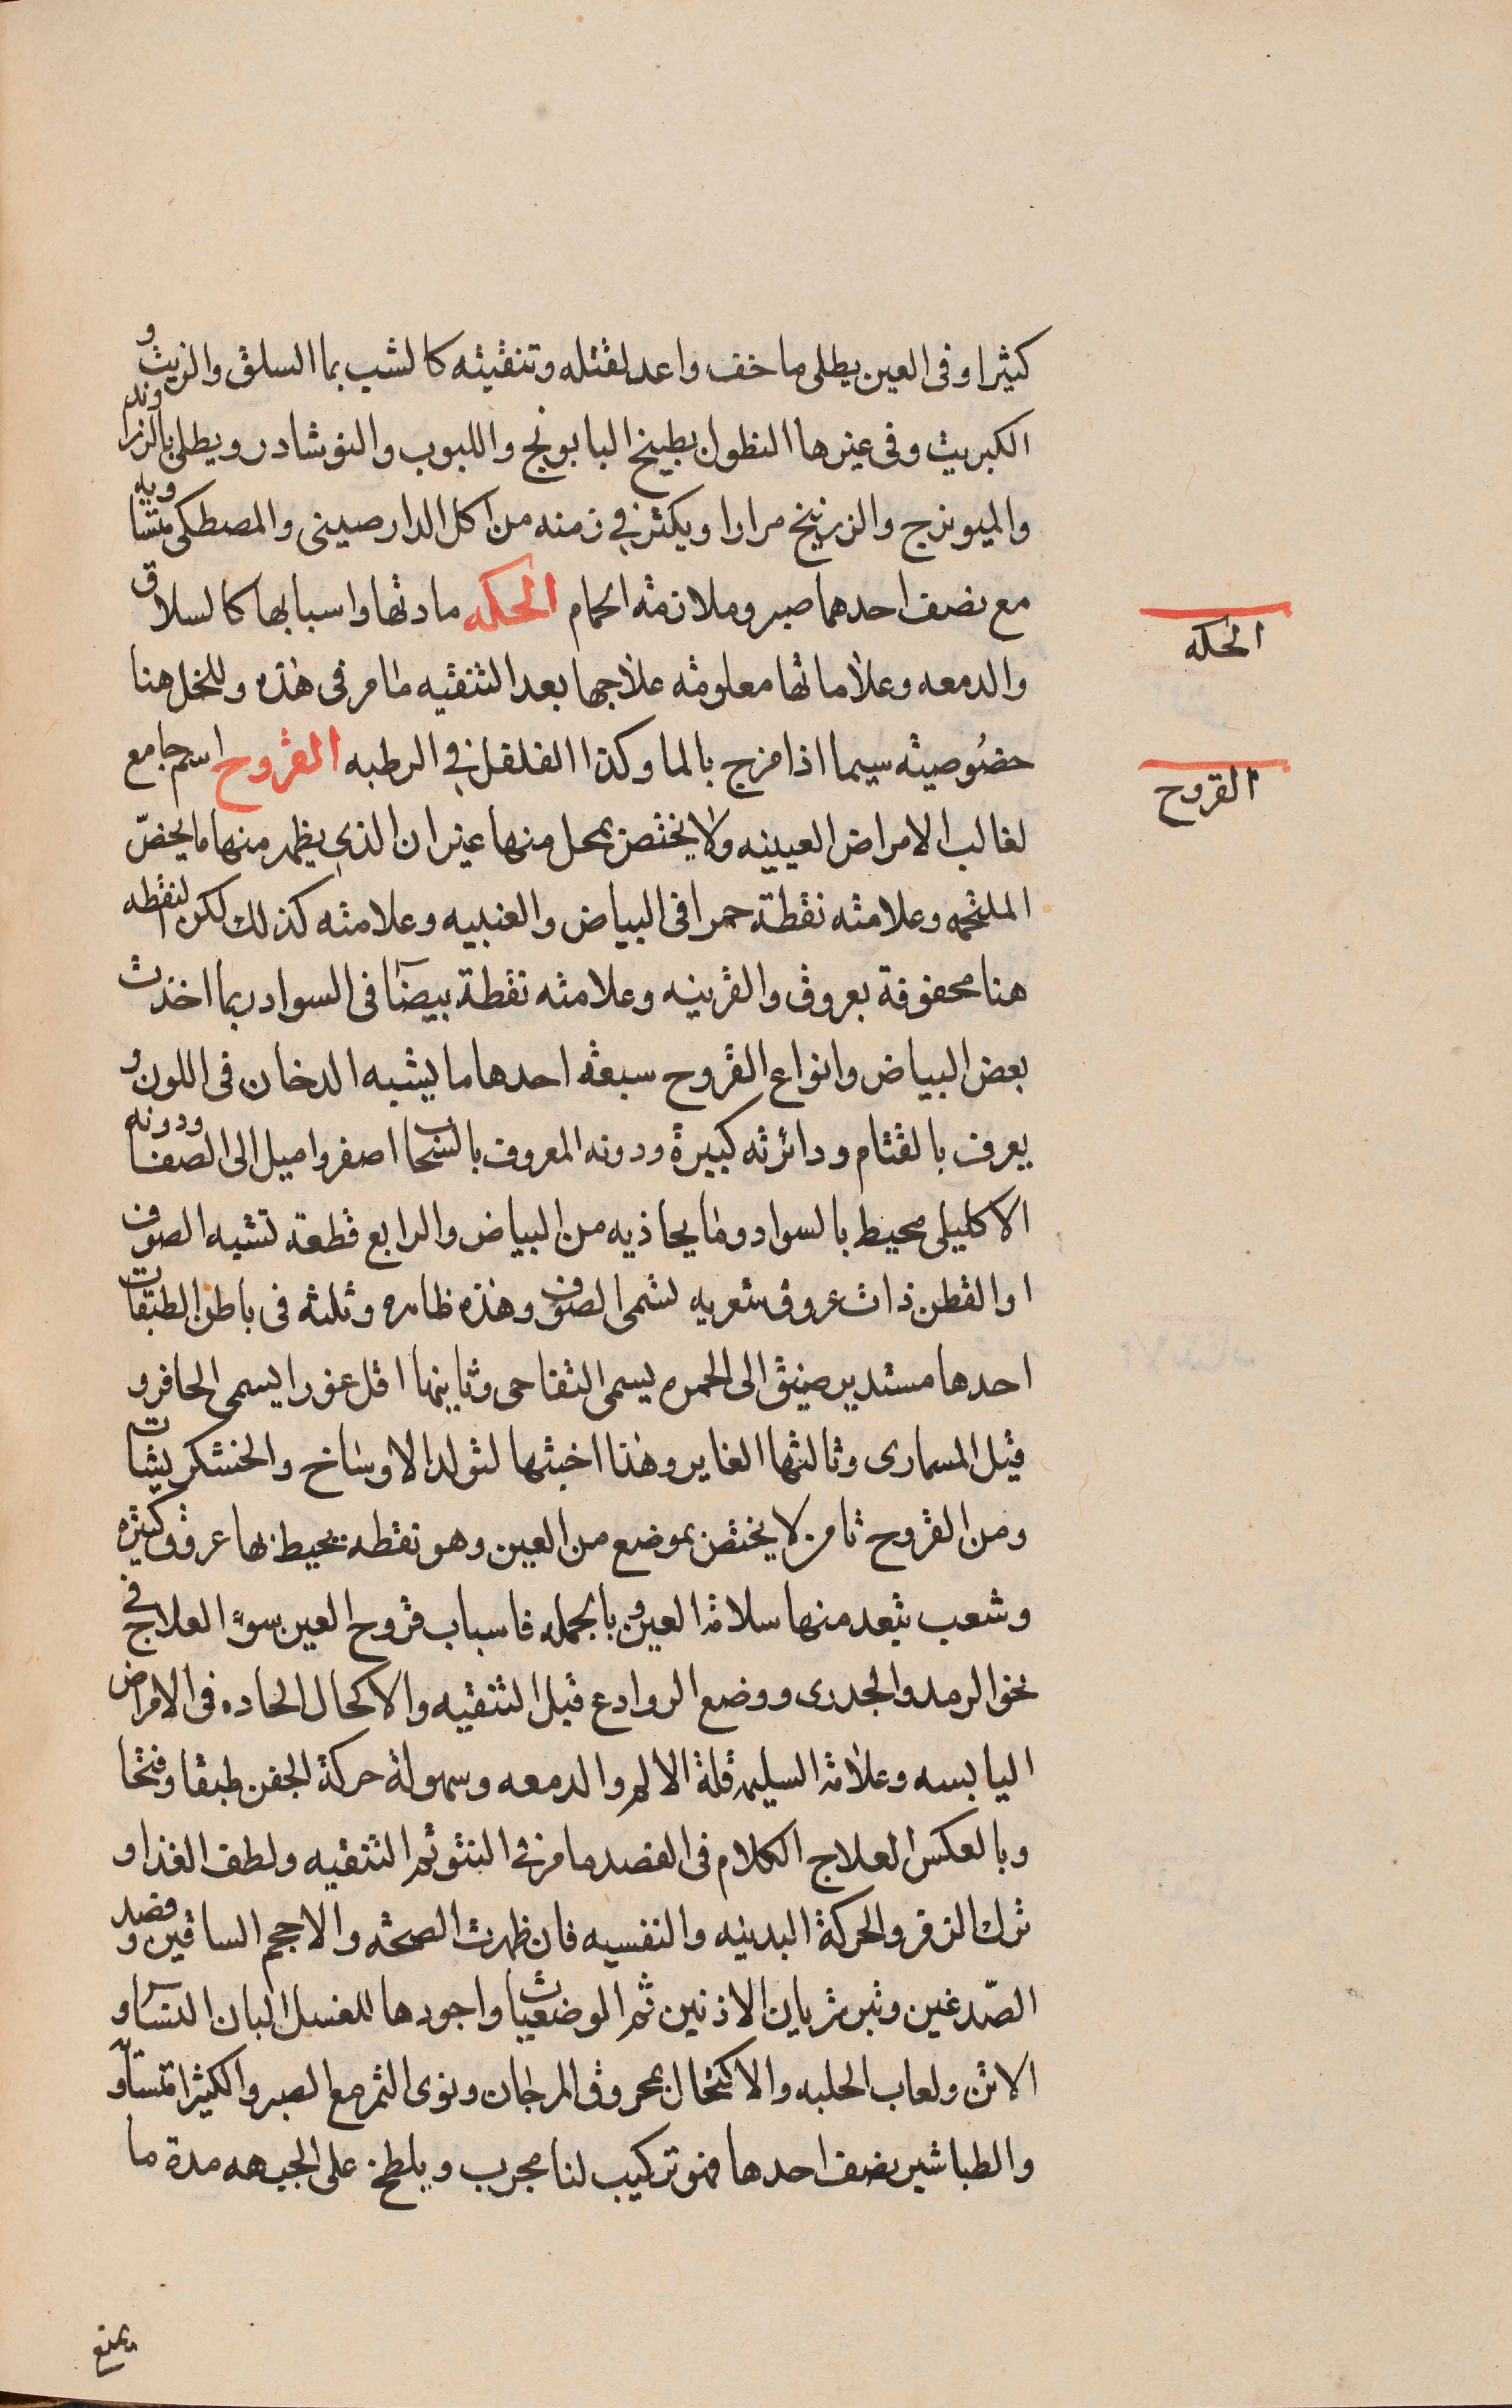 كثيرا وفى العين يطلى ما خف واعد لقتله وتنقيته كالشب بما السلق والزيت و
الكبريت وفى غيرها النطول بطبيخ البابونج واللبوب والنوشادر ويطلى بالزراوند
والميويزج والزرنيخ مرارا ويكثر فى زمنه من اكل الدارصينى والمصطكى متساويه
مع نصف احدهما صبر وملازمة الحمام الحكه مادتها واسبابها كالسلاق
والدمعه وعلاماتها معلومة علاجها بعد التنقيه ما مر فى هذه وللخل هنا
خصُوصيته سيما اذا مزج بالما وكذا الفلفل فى الرطبه القروح اسم جامع
لغالب الامراض العينيه ولا يختص بمحل منها غير ان الذى يظهر منها ما يخصّ
الملتحمه وعلامته نقطة حمرا فى البياض والعنبيه وعلامته كذلك لكن لنقطه
هنا محفوفة بعروق والقرنيه وعلامته نقطة بيضآ فى السواد ربما اخذت
بعض البياض وانواع القروح سبعة احدها ما يشبه الدخان فى اللون و
يعرف بالقتام ودائرته كبيرة ودونه المعروف بالسحاب اصفر واميل الى الصفا ودونه
الاكليلى محيط بالسواد وما يحاذيه من البياض والرابع قطعة تشبه الصوف
او القطن ذات عروق شعريه تسمى الصوفى وهذه ظاهره وثلثه فى باطن الطبقات
احدها مستدير ضيق الى الحمره يسمى التفاحى وثانيها اقل غورا يسمى الحافر و
قيل المسمارى وثالثها الغاير وهذا اخبثها لتولد الاوساخ والخشكريشات
ومن القروح ثامن لا يختص بموضع من العين وهو نقطة يحيط بها عروق كثيره
وشعب تبعد منها سلامة العين وبالجمله فاسباب قروح العين سوء العلاج فى
نحو الرمد والجدرى ووضع الروادع قبل التنقيه والاكحال الحاده فى الامراض
اليابسه وعلامة السليم قلة الالم والدمعه وسهولة حركة الجفن طبقا وفتحا
وبالعكس العلاج الكلام فى الفصد ما مر فى النتو ثم التنقيه ولطف الغذا و
ترك الزفر والحركة البدنيه والنفسيه فان ظهرت الصحة والا حجم الساقين وفصد
الصّدغين وتبر شريان الاذنين ثم الوضعيات واجودها للغسل البان النسآ و
الاتن ولعاب الحلبه والاكتحال بمحروق المرجان ونوى التمر مع الصبر والكثيرا متساو
والطباشير نصف احدها فهو تركيب لنا مجرب ويلطخ على الجبهه مدة ما
يمنع
الحكه
القروح